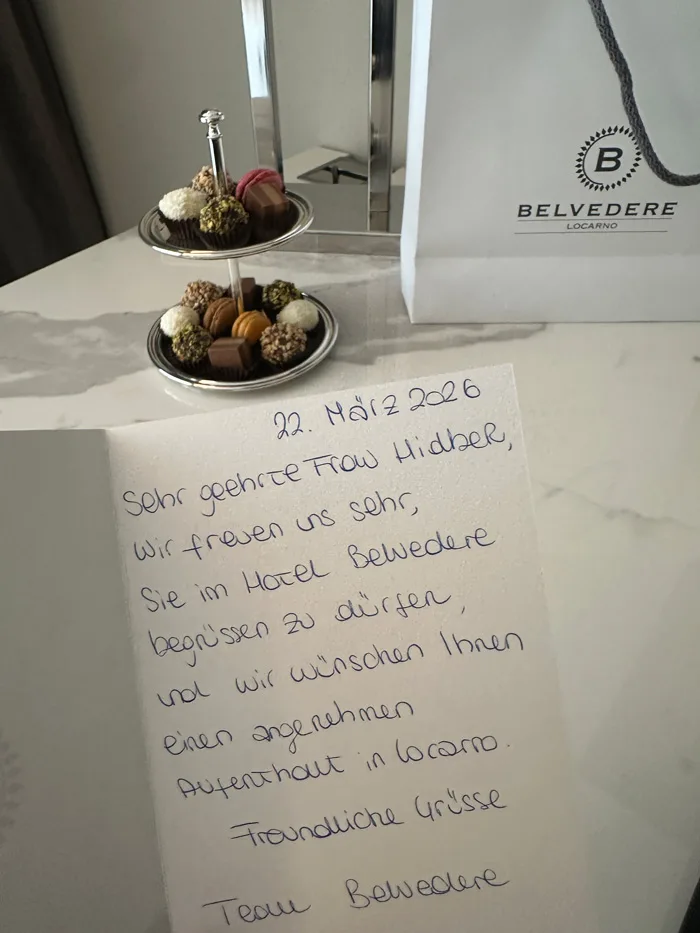 B
BELVEDERE
LOCARNO
22. März 2026
Sehr geehrte Frau Hidber,
Wir freuen uns sehr,
Sie im Hotel Belvedere
begrüssen zu dürfen,
und wir wünschen Ihnen
einen angenehmen
Aufenthalt in Locarno.
Freundliche Grüsse
Team Belvedere